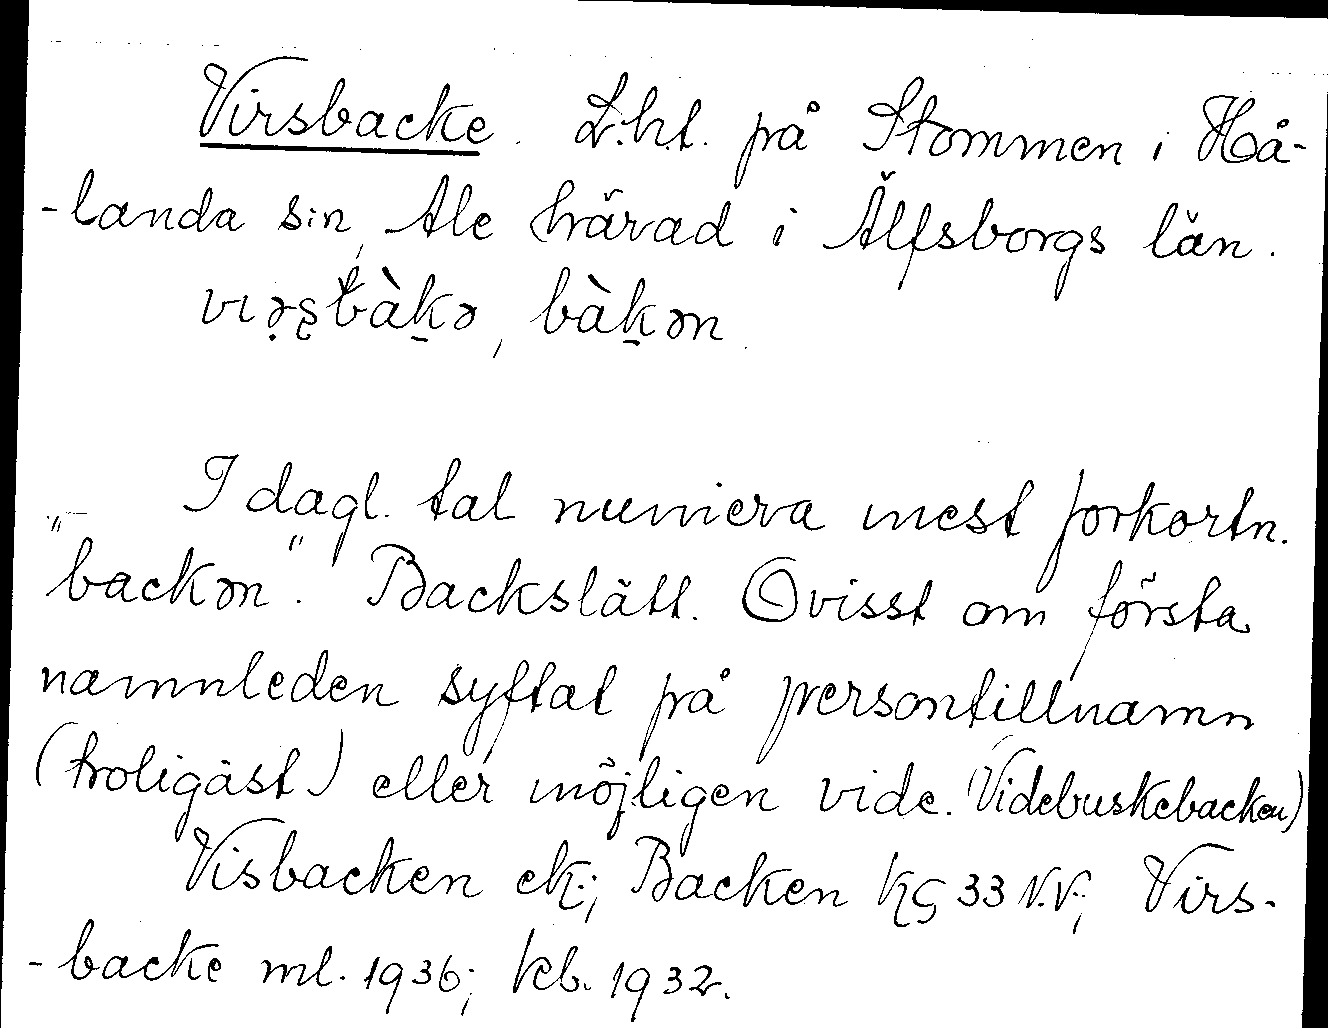 Virsbacke. L.h.t. på Stommen i Hå-
-landa s:n, Ale härad i Älfsborgs län.
vıə̣ʂbàḵə, bàḵən.
I dagl. tal numera mest förkortn.
"backən". Backslätt. Ovisst om första
namnleden syftat på persontillnamn
(troligast) eller möjligen vide. (Videbuskebacken)
Visbacken ek.; Backen kç 33 N.V.; Virs-
-backe ml. 1936; kb. 1932.